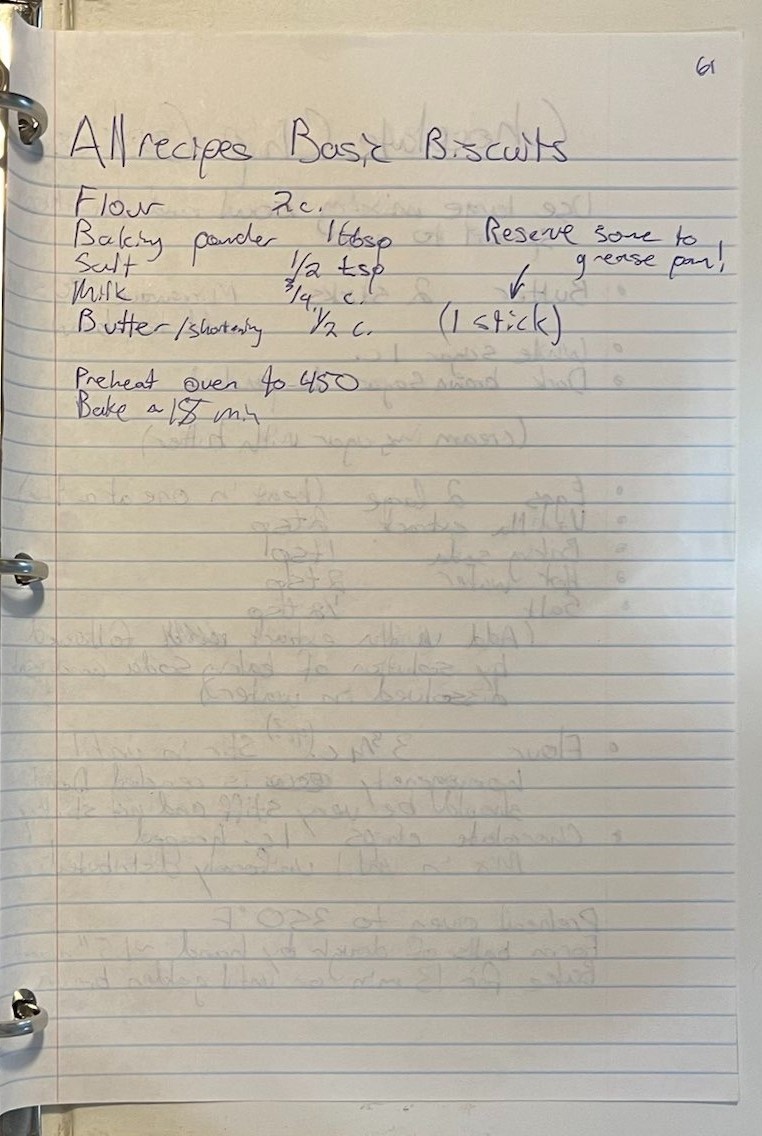 61
Allrecipes Basic Biscuits
Flour 2c.
Baking powder 1 tbsp
Salt 1/2 tsp
Milk 3/4 c.
Butter/shortening 1/2 c. (1 stick)
Reserve some to
grease pan!
Preheat oven to 450
Bake ~ 15 min